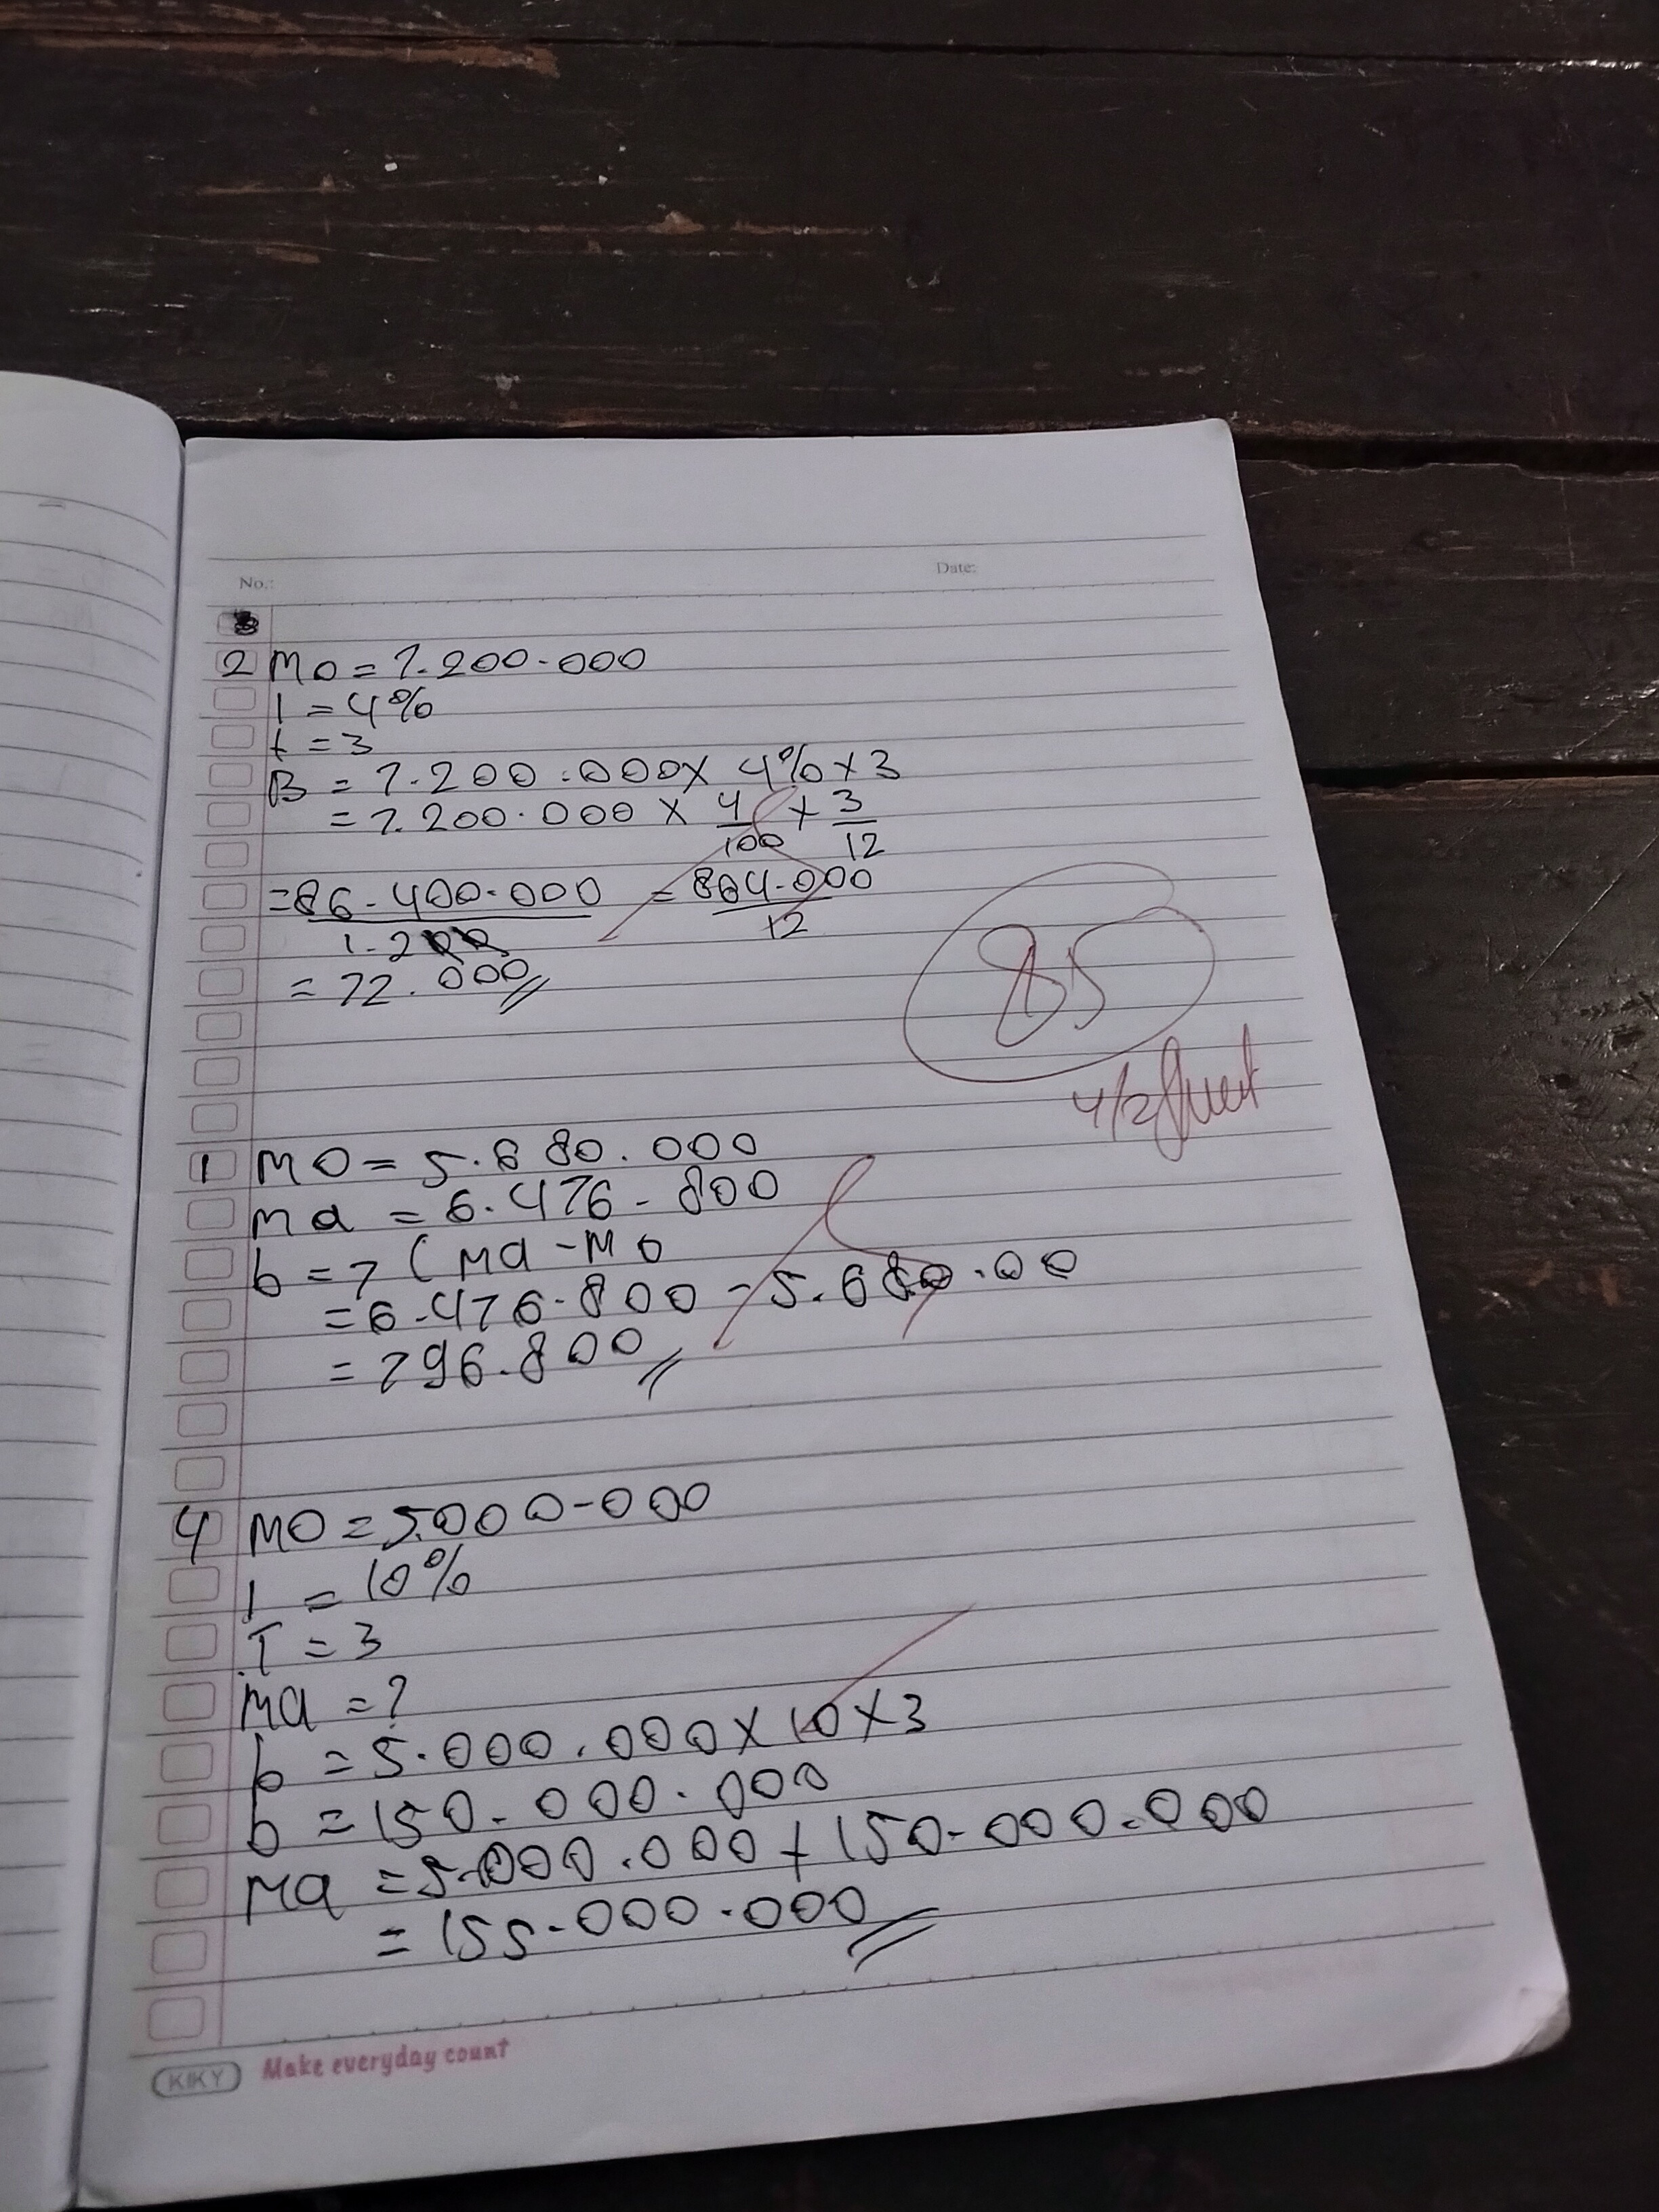 No.:
Date:
2 Mo = 7.200.000
I = 4%
t = 3
B = 7.200.000 x 4% x 3
= 7.200.000 x 4/100 x 3/12
= 86.400.000 / 1.200 = 864.000 / 12
= 72.000
85
4/2
1 MO = 5.680.000
Ma = 6.476.800
b = ? (Ma - Mo
= 6.476.800 - 5.680.00
= 796.800
4 MO = 5.000.000
I = 10%
T = 3
Ma = ?
b = 5.000.000 x 10 x 3
b = 150.000.000
Ma = 5.000.000 + 150.000.000
= 155.000.000
KIKY Make everyday count